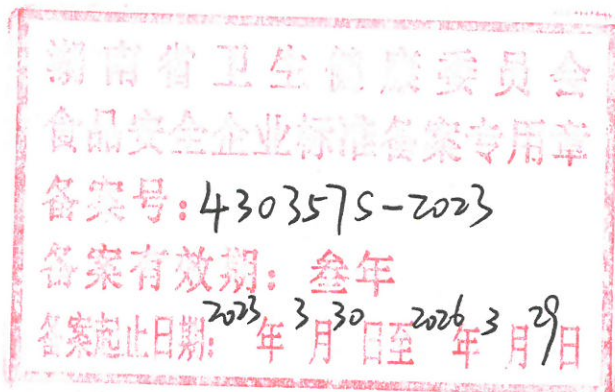 湖南省卫生健康委员会
食品安全企业标准备案专用章
备案号:430357S-2023
备案有效期:叁年
备案起止日期:2023年3月30日至2026年3月29日